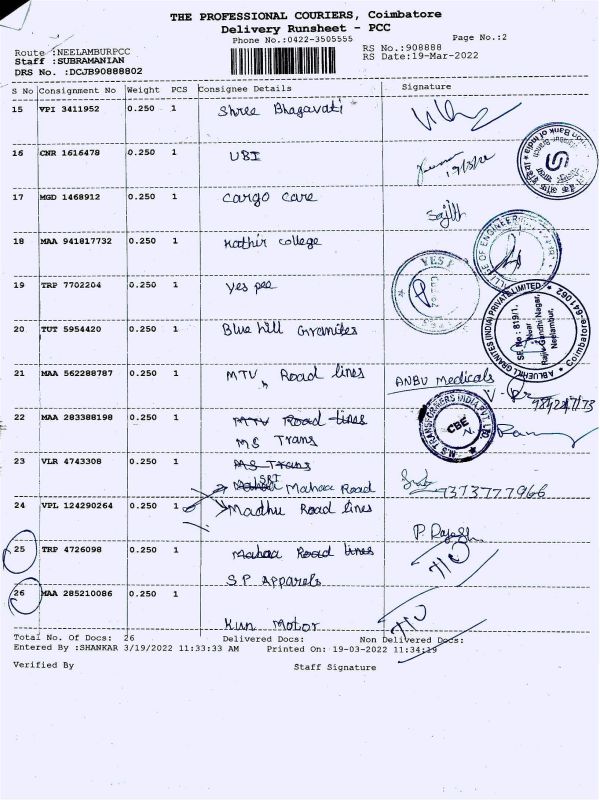 THE PROFESSIONAL COURIERS, Coimbatore
Delivery Runsheet - PCC
Phone No.:0422-3505555
Page No.:2
Route :NEELAMBURPCC
Staff :SUBRAMANIAN
DRS No. :DCJB90888802
RS No.:908888
RS Date:19-Mar-2022
S No Consignment No Weight PCS Consignee Details Signature
15 VPI 3411952 0.250 1 Shree Bhagavati
16 CNR 1616478 0.250 1 UBI 19/3/22
17 MGD 1468912 0.250 1 Cargo Care Sajith
18 MAA 941817732 0.250 1 Kathir College
19 TRP 7702204 0.250 1 Yes pee
20 TUT 5954420 0.250 1 Blue hill Granites
ABLUEHILL GRANITES (INDIA PRIVATE LIMITED) Coimbatore-641062
SF No : 819/1,
Near
Rajiv Gandhi Nagar,
Neelambur,
21 MAA 562288787 0.250 1 MTV Road lines ANBU Medicals
22 MAA 283388198 0.250 1 MTV Road lines
MS Trans
M.S TRANSFORMERS INDIA PVT. LTD.
CBE
23 VLR 4743308 0.250 1 MS Trans
SRI Mahaa Road 7373777966
24 VPL 124290264 0.250 1 Madhu Road lines
P. Rajesh
25 TRP 4726098 0.250 1 Mahaa Road lines
S.P Apparels
26 MAA 285210086 0.250 1
Kun Motor
Total No. Of Docs: 26 Delivered Docs: Non Delivered Docs:
Entered By :SHANKAR 3/19/2022 11:33:33 AM Printed On: 19-03-2022 11:34:19
Verified By Staff Signature